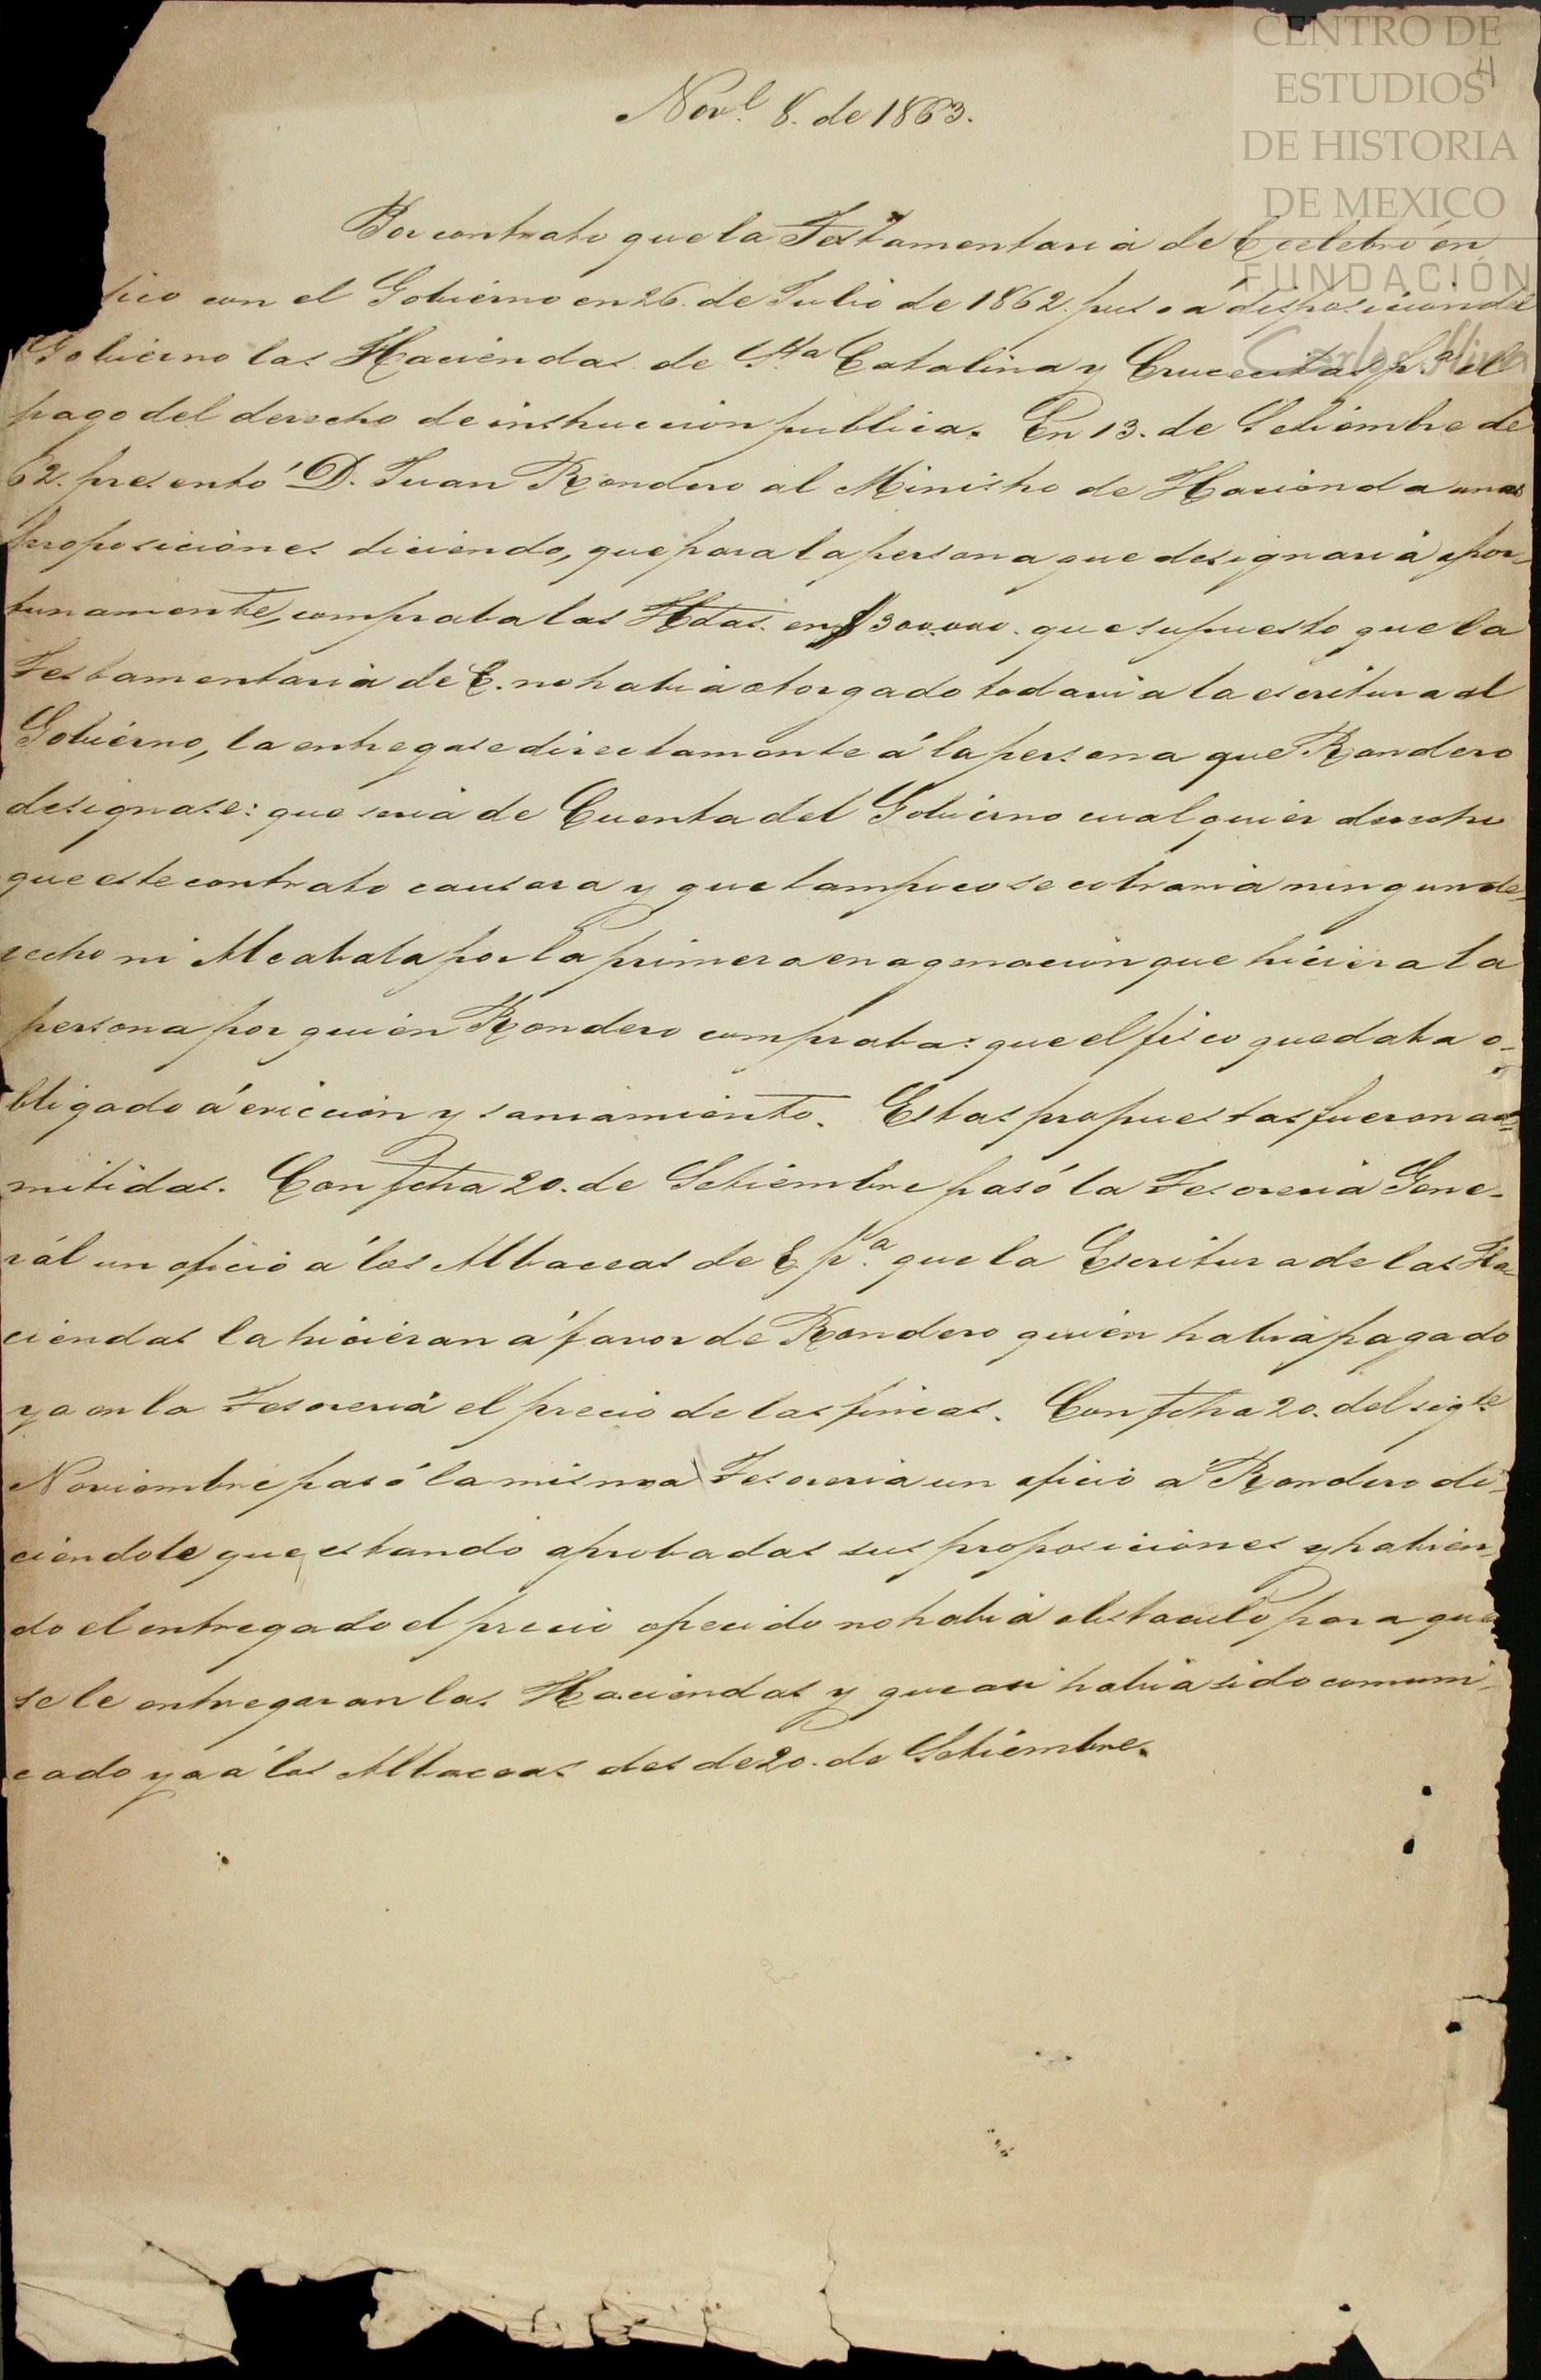 CENTRO DE
ESTUDIOS
DE HISTORIA
DE MEXICO
FUNDACIÓN
Carlos Slim
4
Nov.e 8. de 1863.
Por contrato que la Testamentaria de E celebró en
jico con el Gobierno en 26. de Julio de 1862. puso a disposicion del
Gobierno las Haciendas de Sta Catalina y Crucecitas p.a el
pago del derecho de instruccion publica. En 13. de Setiembre de
62. presentó D. Juan Rondero al Ministro de Hacienda unas
proposiciones diciendo, que para la persona que designaria opor-
tunamente, compraba las Hdas. en $300.000. que supuesto que la
Testamentaria de E. no habia otorgado todavia la escritura al
Gobierno, la entregase directamente á la persona que Rondero
designase: que seria de Cuenta del Gobierno cualquier derecho
que este contrato causara y que tampoco se cobraria ningun de-
recho ni Alcabala por la primera enagenacion que hiciera la
persona por quien Rondero compraba: que el fisco quedaba o-
bligado á eviccion y saneamiento. Estas propuestas fueron ad-
mitidas. Con fcha 20. de Setiembre pasó la Tesoreria Gene-
rál un oficio a los Albaceas de E p.a que la Escritura de las Ha-
ciendas la hicieran á favor de Rondero quien habia pagado
ya en la Tesoreria el precio de las fincas. Con fcha 20. del sigte
Noviembre pasó la misma Tesoreria un oficio a Rondero di-
ciendole que estando aprobadas sus proposiciones y habien-
do el entregado el precio ofrecido no habia obstaculo para que
se le entregaran las Haciendas y que asi habia sido comuni-
cado ya á los Albaceas desde 20. de Setiembre.